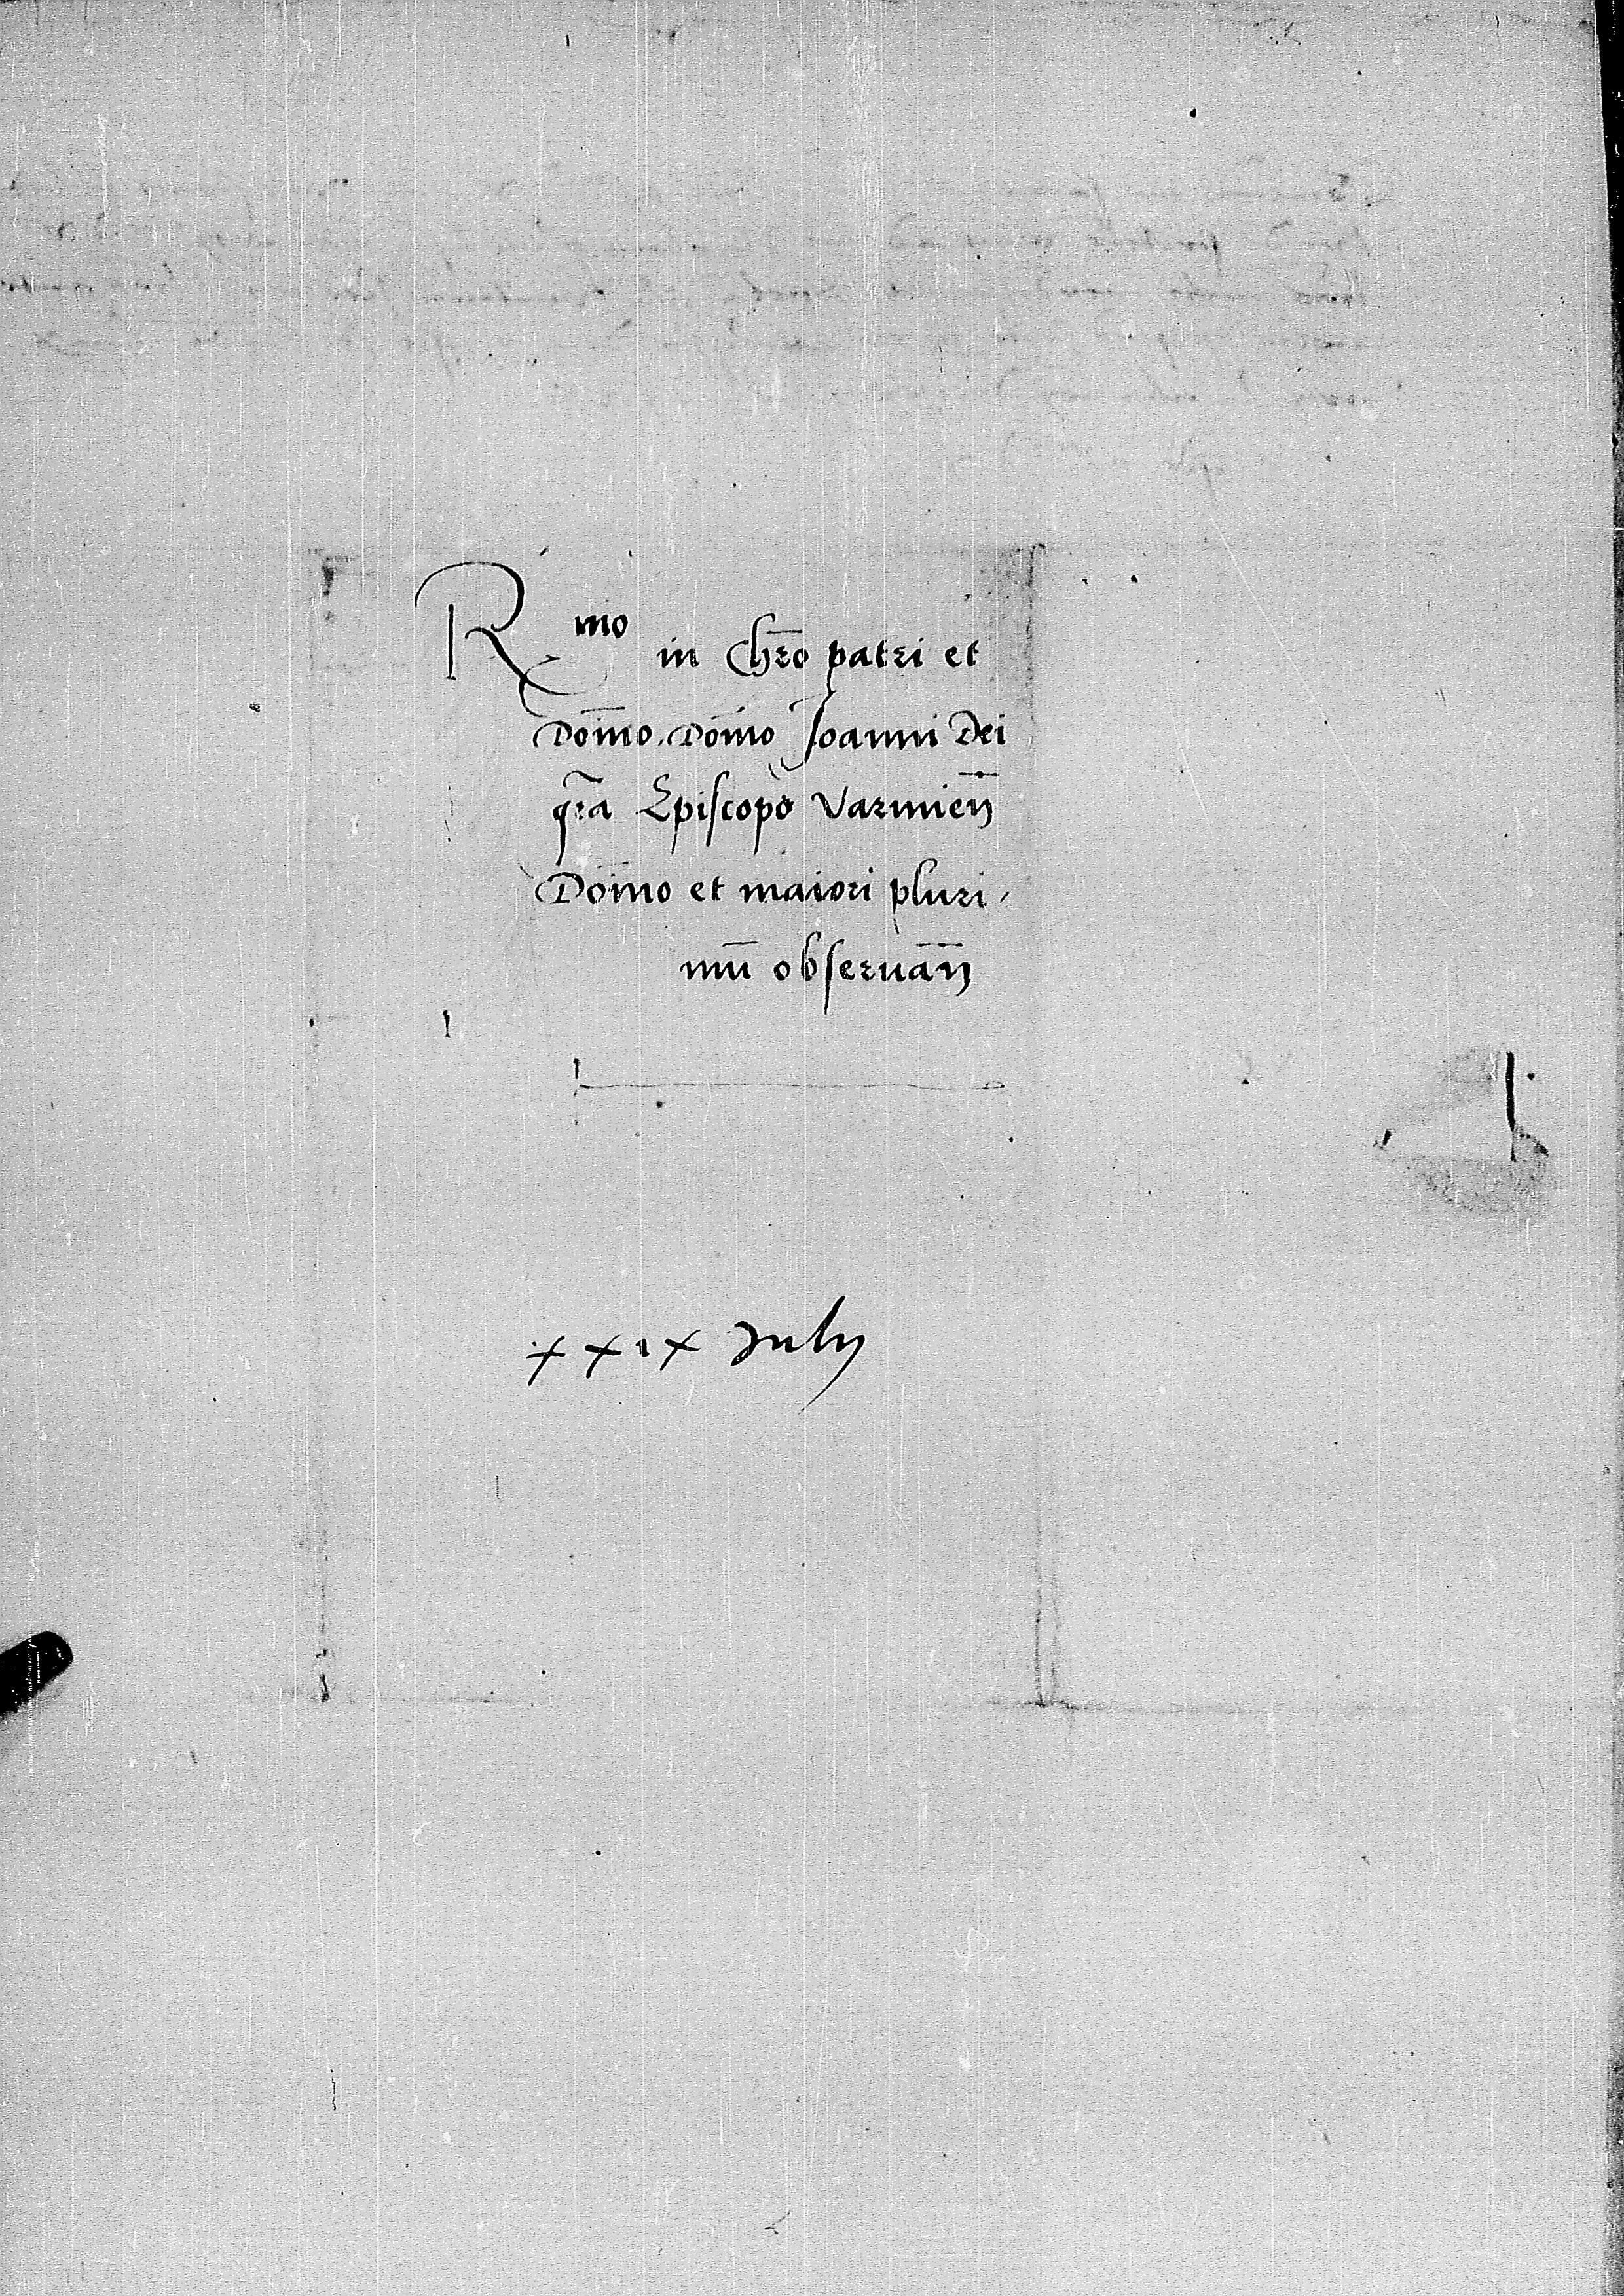 Rmo in Chro patri et
Domino. Domino Joanni Dei
gra Episcopo Varmien
Domino et maiori pluri-
mū observan
xxix July